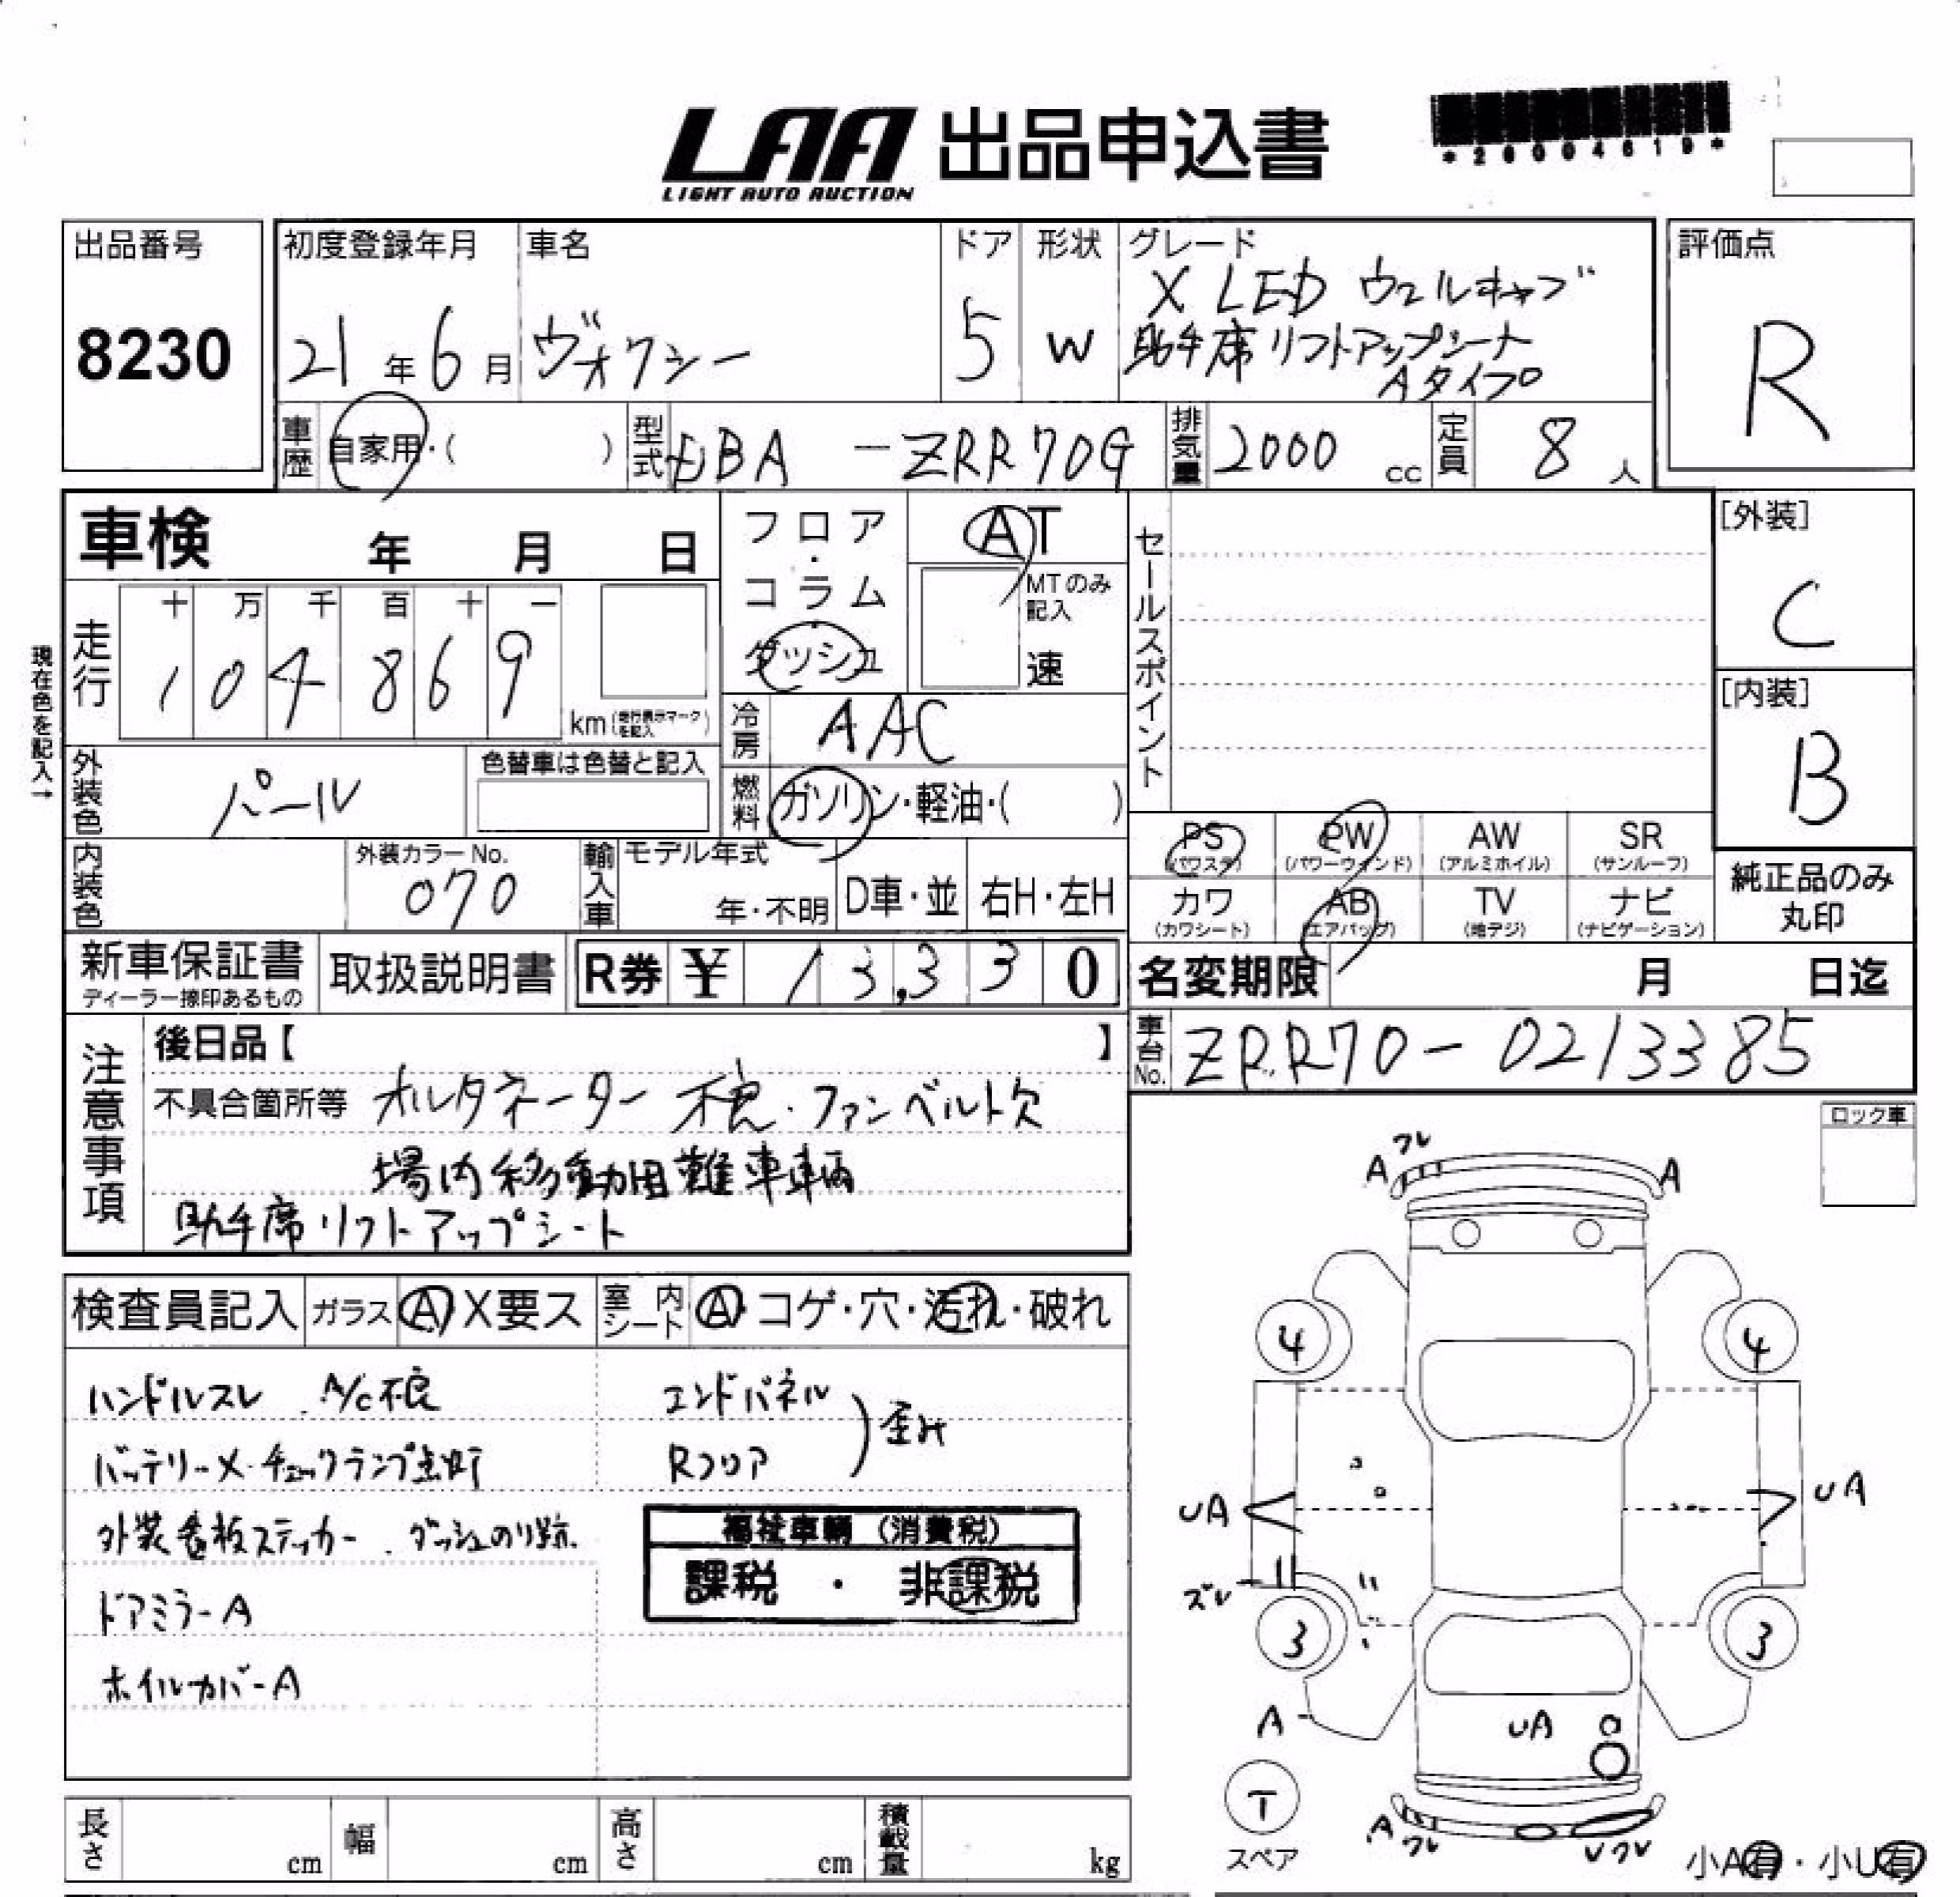 LAA 出品申込書
LIGHT AUTO AUCTION
*26004619*
出品番号
8230
初度登録年月
21年6月
車名
ヴォクシー
ドア
5
形状
W
グレード
X LED ウェルキャブ
助手席リフトアップシート
Aタイプ
評価点
R
車歴 自家用・( )
型式 EBA-ZRR70G
排気量 2000 cc
定員 8 人
車検 年 月 日
フロア・コラム・ダッシュ
AT
MTのみ記入
速
セールスポイント
[外装]
C
[内装]
B
現在色を記入→
走行
十 万 千 百 十 一
1 0 4 8 6 9
km(走行表示マークを記入)
冷房 AAC
外装色 パール
色替車は色替と記入
燃料 ガソリン・軽油・( )
内装色
外装カラーNo.
070
輸入車
モデル年式
年・不明
D車・並
右H・左H
PS (パワステ)
PW (パワーウィンド)
AW (アルミホイル)
SR (サンルーフ)
カワ (カワシート)
AB (エアバッグ)
TV (地デジ)
ナビ (ナビゲーション)
純正品のみ丸印
新車保証書
ディーラー捺印あるもの
取扱説明書
R券 ¥ 13,330
名変期限 月 日迄
車台No. ZRR70-0213385
注意事項
後日品【 】
不具合箇所等 オルタネーター不良.ファンベルト欠
場内移動困難車輌
助手席リフトアップシート
ロック車
検査員記入
ガラス A X要ス
室内シート A・コゲ・穴・汚れ・破れ
ハンドルスレ.A/C不良
バッテリーメ・チェックランプ点灯
外装看板ステッカー.ダッシュのり跡.
ドアミラーA
ホイルカバーA
エンドパネル
Rフロア
歪み
福祉車輌(消費税)
課税・非課税
A フレ A
4 4
UA UA
ズレ
3 3
A
UA
T
スペア
A フレ Uフレ
小A有・小U有
長さ cm
幅 cm
高さ cm
積載量 kg